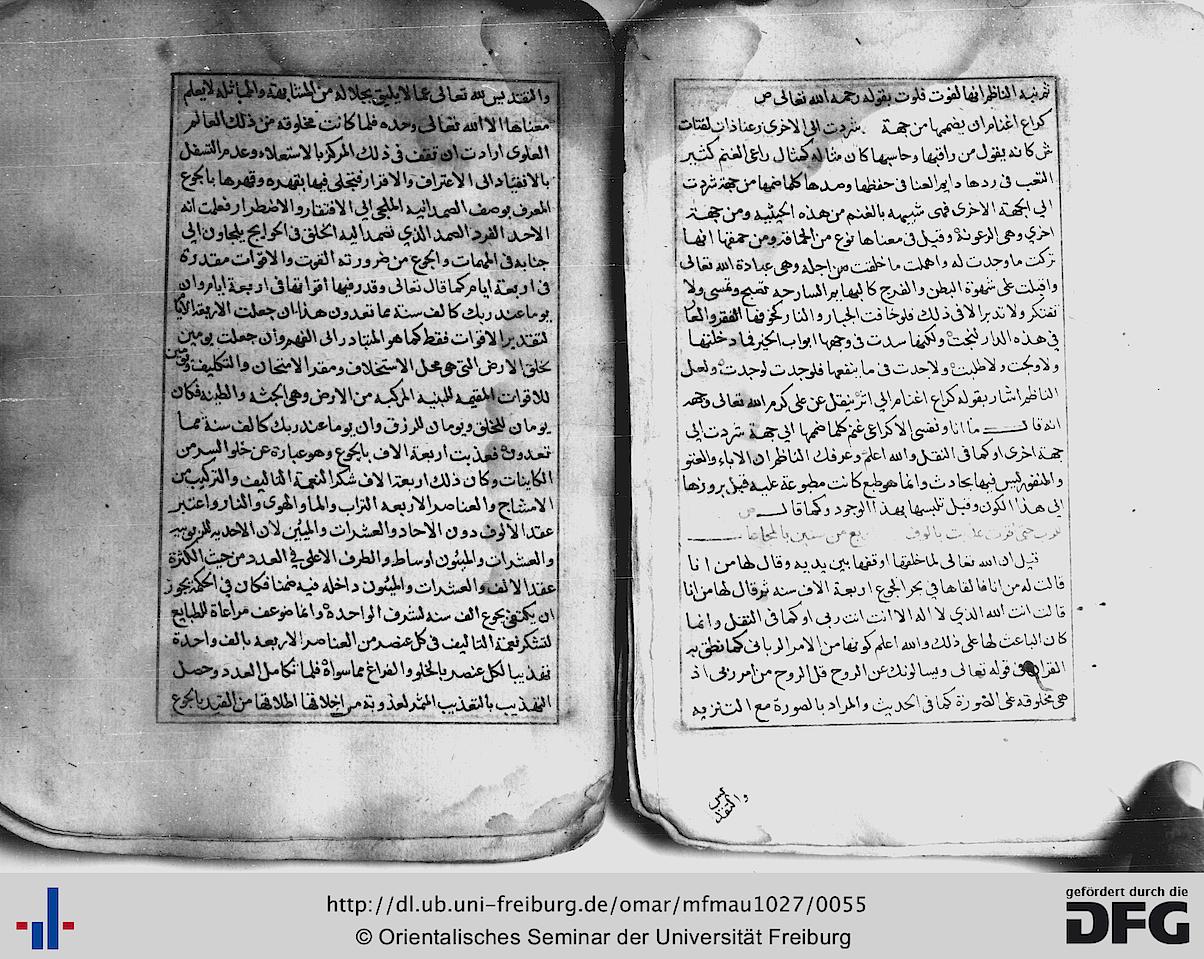 ثم نبه الناظم انها لغوت فلوت بقوله رحمه الله تعالى ص
كراع اغنام ان يضمها من جهة شردت الى الاخرى رعناذات لفتات
ش كانه يقول من راقبها وحاسبها كان مثاله كمثال راعى الغنم كثير
التعب فى ردها دايم العنا فى حفظها وصدها كلما ضمها من جهة شردت
الى الجهة الاخرى فهى شبيهه بالغنم من هذه الحيثيه ومن جهة
اخرى وهى الرعونة وقيل فى معناها نوع من الحماقه ومن حمقها انها
تركت ما وجدت له واهملت ما خلقت من اجله وهى عبادة الله تعالى
واقبلت على شهوة البطن والفرج كالبهايم السارحه تصبح وتمسى ولا
تفتكر ولا تدبر الا فى ذلك فلو خافت الجبار والنار كخوفها الفقر والعار
فى هذه الدار لنجت ولكنها سدت فى وجهها ابواب الخير فما دخلتها
ولا ولجت ولا طلبت ولا جدت فى ما ينفعها فلو جدت لوجدت ولعل
الناظم اشار بقوله كراع اغنام الى اثر ينقل عن على كرم الله تعالى وجهه
انه قال ما انا ونفسى الا كراعى غنم كلما ضمها الى جهة شردت الى
جهة اخرى او كما فى النقل والله اعلم وعرفك الناظم ان الاباء والعتو
والنفور ليس فيها بحادث وانما هو طبع كانت مطبوعة عليه قبل بروزها
الى هذا الكون وقبل تلبسها بهذا الوجود وكما قال ص
قيل ان الله تعالى لما خلقها اوقفها بين يديه وقال لها من انا
قالت له من انا فالقاها فى بحر الجوع اربعة الاف سنه ثم قال لها من انا
قالت انت الله الذي لا اله الا انت انت ربى او كما فى النقل وانما
كان الباعث لها على ذلك والله اعلم كونها من الامر الربانى كما نطق به
القران فى قوله تعالى ويسالونك عن الروح قل الروح من امر ربى اذ
هى مخلوقه على الصورة كما فى الحديث والمراد بالصورة مع التنزيه
والتقديس
والتقديس لله تعالى عما لا يليق بجلاله من المشابهة والمماثله لا يعلم
معناها الا الله تعالى وحده فلما كانت مخلوقه من ذلك العالم
العلوى ارادت ان تقف فى ذلك المركز بالاستعلاء وعدم التسفل
بالانقياد الى الاعتراف والاقرار فتجلى فيها بقهره وقهرها بالجوع
المعرف بوصف الصمدانيه الملجى الى الافتقار والاضطرار فعلمت انه
الاحد الفرد الصمد الذي تصمد اليه الخلق فى الحوايج يلجاون الى
جنابه فى المهمات والجوع من ضرورته القوت والاقوات مقدرة
فى اربعة ايام كما قال تعالى وقدر فيها اقواتها فى اربعة ايام وان
يوما عند ربك كالف سنة مما تعدون هذا ان جعلت الاربعة الايام
لتقدير الاقوات فقط كما هو المتبادر الى الفهم وان جعلت يومين
لخلق الارض التى هى محل الاستخلاف ومقر الامتحان والتكليف ويومين
للاقوات المقيمه للبنيه المركبه من الارض وهى الجثه والطينه فكان
يومان للخلق ويومان للرزق وان يوما عند ربك كالف سنة مما
تعدون فعذبت اربعة الاف بالجوع وهو عبارة عن خلو السر من
الكاينات وكان ذلك اربعة الاف شكر النعمة التاليف والتركيب من
الامشاج والعناصر الاربعه التراب والما والهوى والنار واعتبر
عقد الالوف دون الاحاد والعشرات والمئين لان الاحديه للربوبيه
والعشرات والمئون اوساط والطرف الاعلى فى العدد من حيث الكثرة
عقد الالف والعشرات والمئون داخله فيه ضمنا فكان فى الحكمة يجوز
ان يكتفى بجوع الف سنه لشرف الواحدة وانما ضوعف مراعاة للطبايع
لتشكر نعمة التاليف فى كل عنصر من العناصر الاربعه بالف واحدة
تهذيبا لكل عنصر بالخلو والفراغ مما سواه فلما تكامل العدد وحصل
التهذيب بالتعذيب المثمر لعذوبته من اخلاقها اطلاقها من القيد بالجوع
http://dl.ub.uni-freiburg.de/omar/mfmau1027/0055
© Orientalisches Seminar der Universität Freiburg
gefördert durch die
DFG